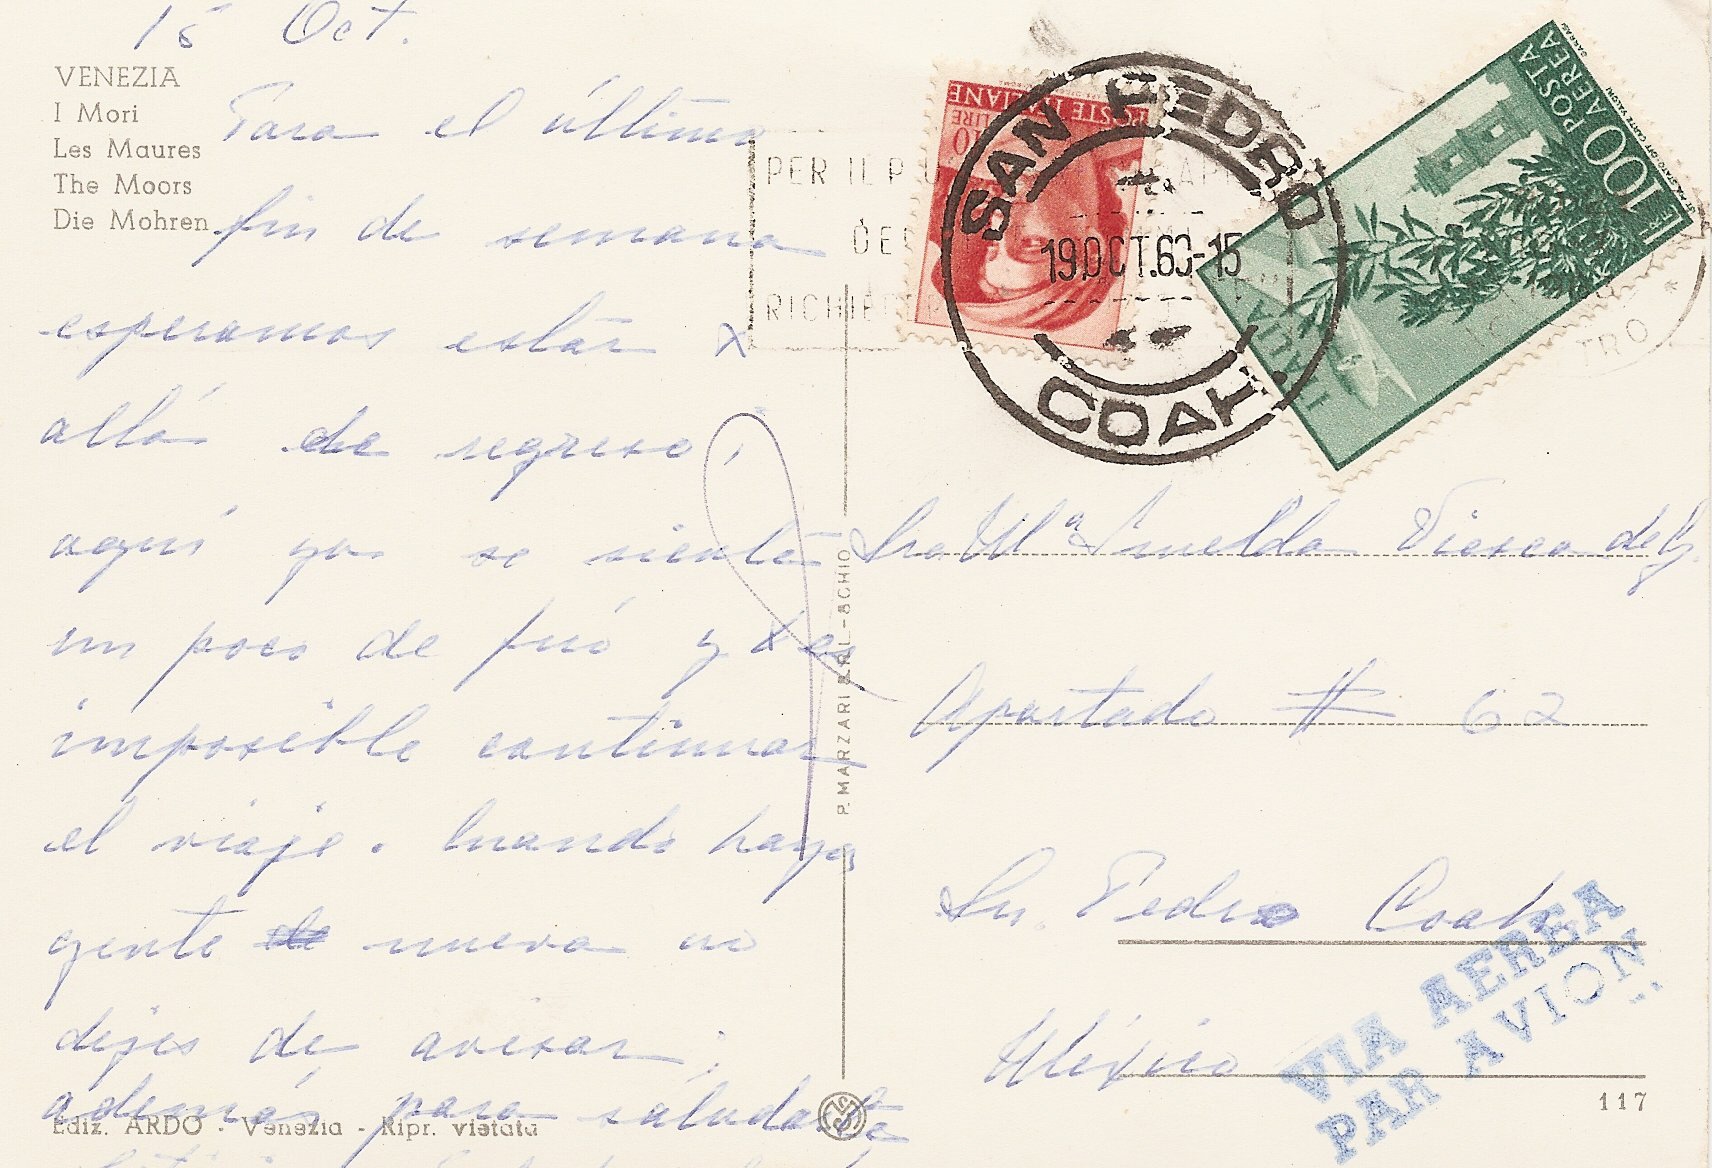 15 Oct.
VENEZIA
I Mori
Les Maures
The Moors
Die Mohren
Para el último
fin de semana
esperamos estar
allá de regreso;
aquí ya se siente
un poco de frío y es
imposible continuar
el viaje. Cuando haya
gente nueva no
dejes de avisar;
además para saludarte
Ediz. ARDO - Venezia - Ripr. vietata
P. MARZARI S.R.L. - SCHIO
PER IL P
DE
RICHIE
POSTE ITALIANE
LIRE 10
SAN PEDRO
19 OCT. 60-15
COAH.
POSTA AEREA
L. 100
ITALIA
TRO
Sra Mª Imelda Viesca de G.
Apartado # 62
Sn. Pedro Coah
México
VIA AEREA
PAR AVION
117